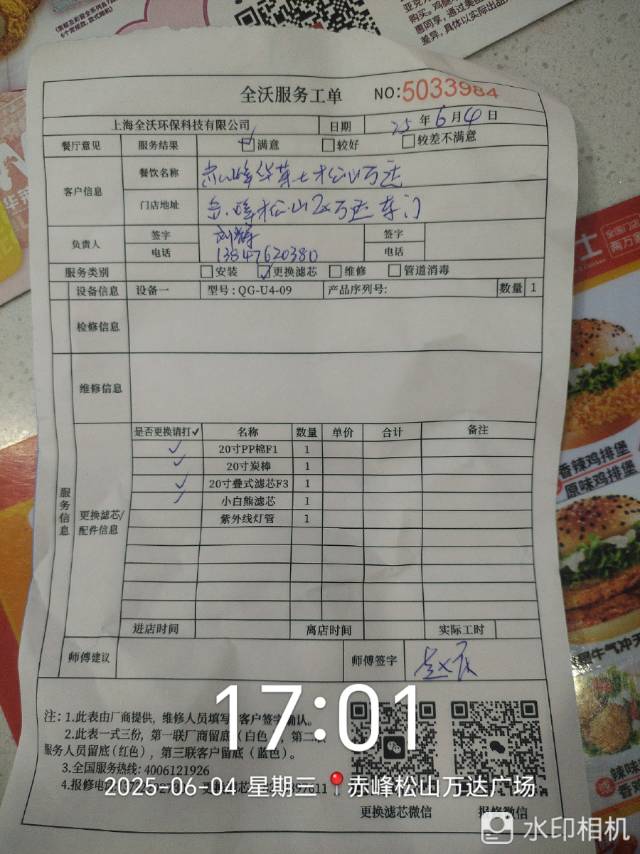 全沃服务工单 NO:5033984
上海全沃环保科技有限公司 日期 25年6月4日
餐厅意见 服务结果 满意 较好 较差不满意
客户信息 餐饮名称 赤峰华莱士松山万达
门店地址 赤峰松山区万达东门
负责人 签字 签字
电话 13847620380 电话
服务类别 安装 ✓更换滤芯 维修 管道消毒
设备信息 设备一 型号:QG-U4-09 产品序列号: 数量 1
检修信息
维修信息
服务信息
更换滤芯/配件信息
是否更换请打✓ 名称 数量 单价 合计 备注
✓ 20寸PP棉F1 1
✓ 20寸炭棒 1
✓ 20寸叠式滤芯F3 1
✓ 小白熊滤芯 1
紫外线灯管 1
进店时间 离店时间 实际工时
师傅建议 师傅签字
注:1.此表由厂商提供,维修人员填写 客户签字确认。
2.此表一式三份,第一联厂商留底(白色 第二
服务人员留底(红色),第三联客户留底(蓝色)。
3.全国服务热线:4006121926
4.报修电 97611
更换滤芯微信 报修微信
17:01
2025-06-04 星期三 赤峰松山万达广场
水印相机
香辣鸡排堡
原味鸡排堡